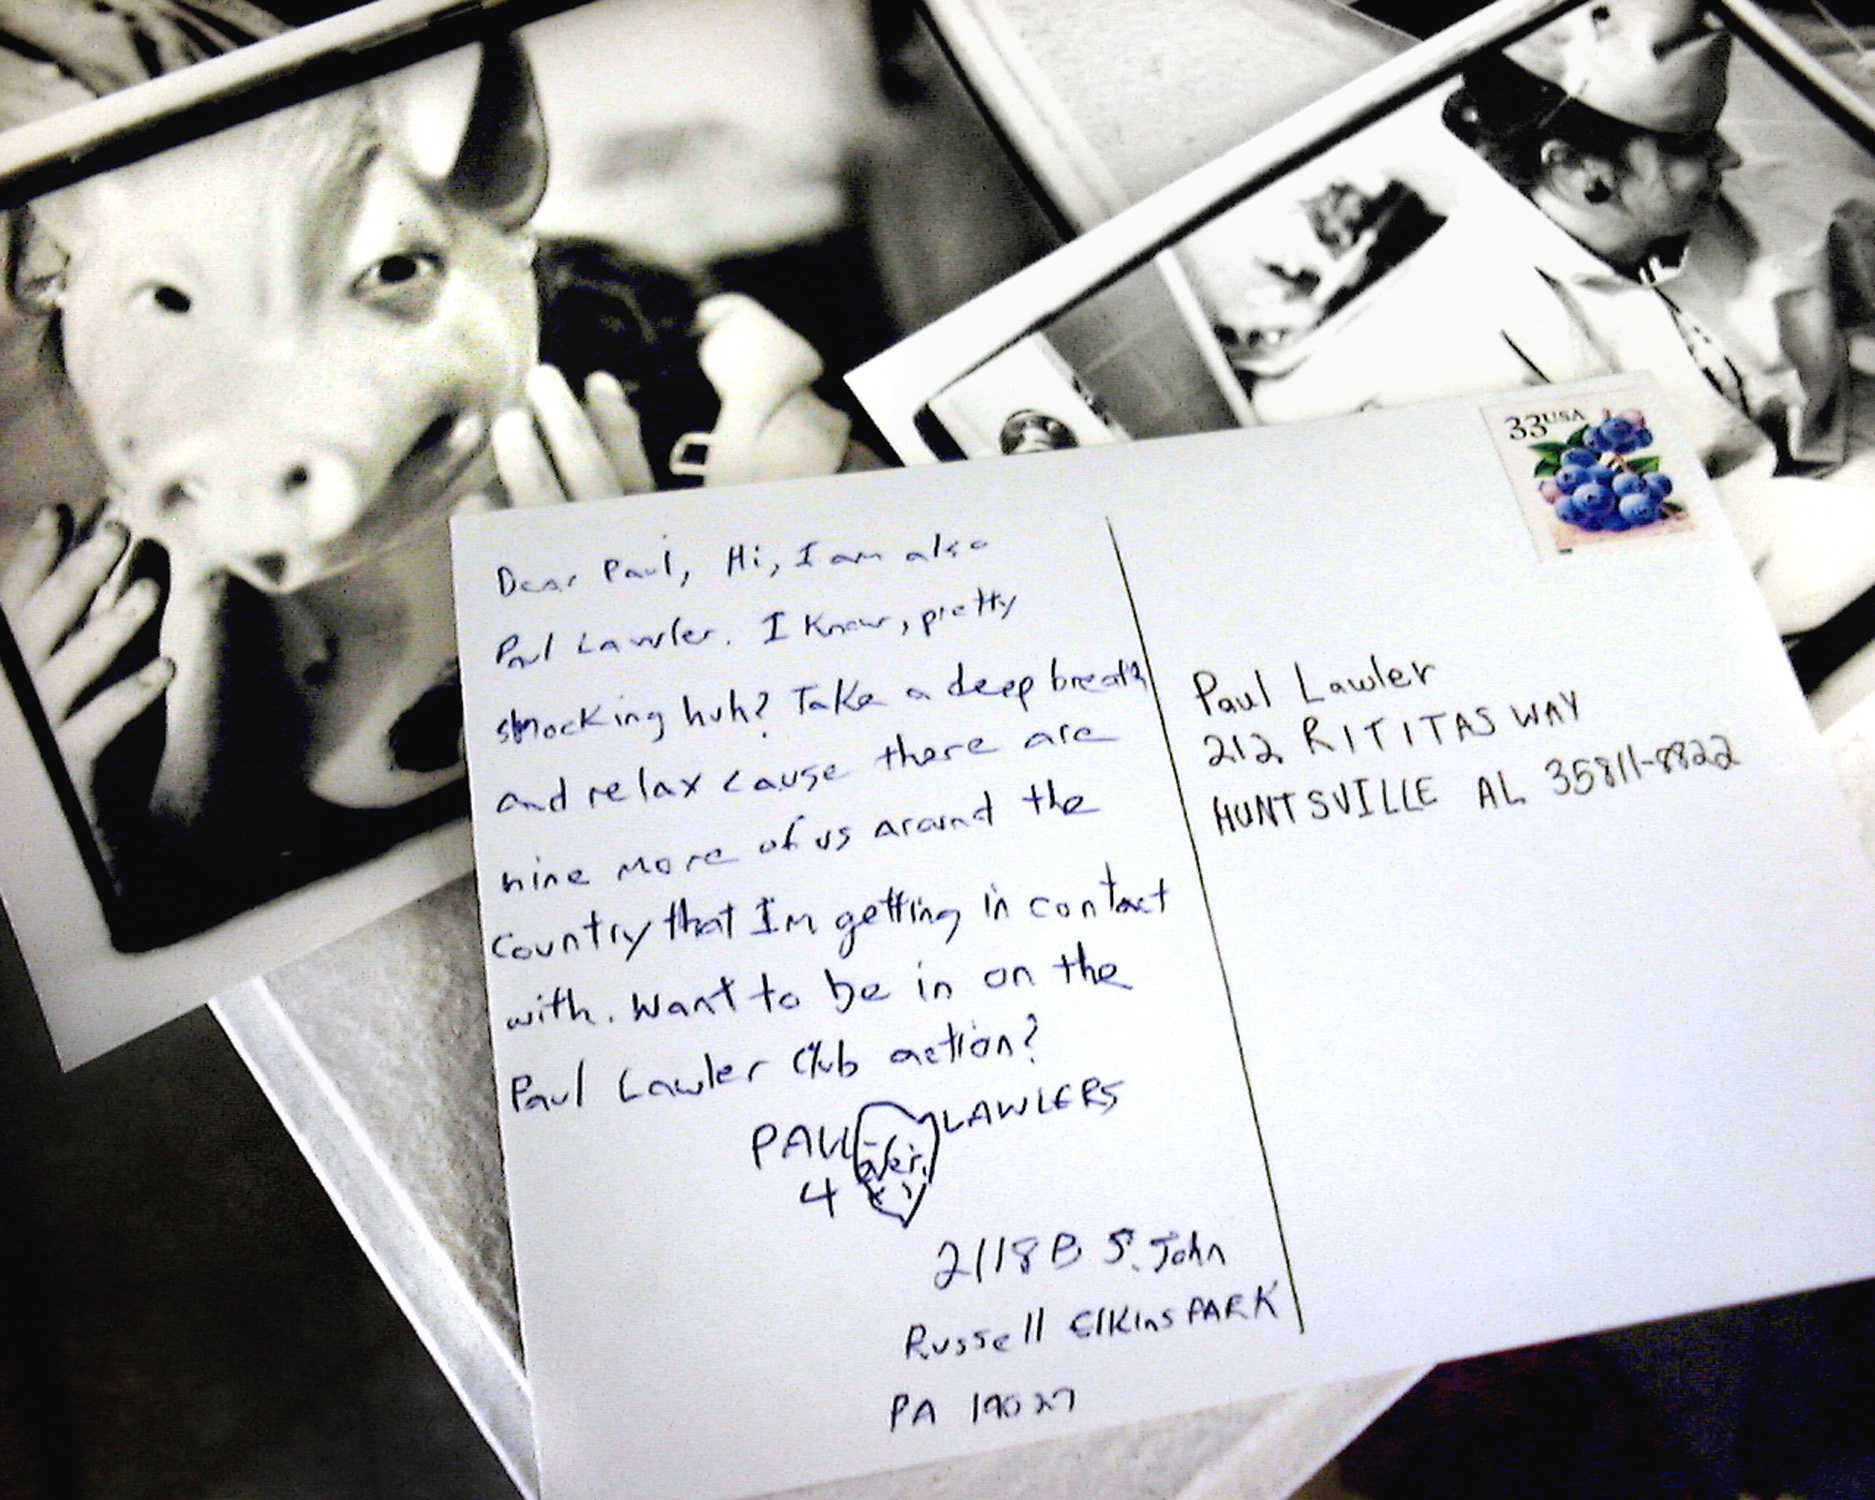 Dear Paul, Hi, I am also
Paul Lawler. I know, pretty
shocking huh? Take a deep breath
and relax cause there are
nine more of us around the
country that I'm getting in contact
with. Want to be in on the
Paul Lawler Club action?
PAUL LAWLERS
4
2118B St. John
Russell Elkins PARK
PA 19027
33USA
Paul Lawler
212 RITITAS WAY
HUNTSVILLE AL 35811-8822